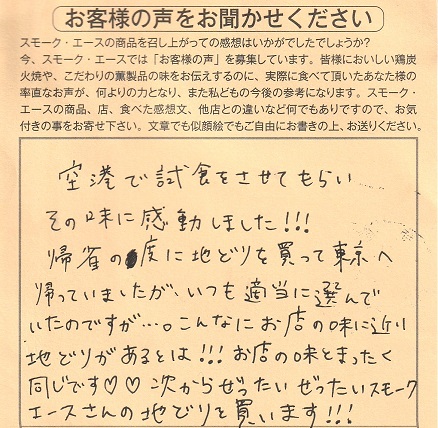 お客様の声をお聞かせください
スモーク・エースの商品を召し上がっての感想はいかがでしたでしょうか?
今、スモーク・エースでは「お客様の声」を募集しています。皆様においしい鶏炭
火焼や、こだわりの薫製品の味をお伝えするのに、実際に食べて頂いたあなた様の
率直なお声が、何よりの力となり、また私どもの今後の参考になります。スモーク・
エースの商品、店、食べた感想文、他店との違いなど何でもありですので、お気
付きの事をお寄せ下さい。文章でも似顔絵でもご自由にお書きの上、お送りください。
空港で試食をさせてもらい
その味に感動しました!!!
帰省の度に地どりを買って東京へ
帰っていましたが、いつも適当に選んで
いたのですが…。こんなにお店の味に近い
地どりがあるとは!!!お店の味とまったく
同じです♡♡次からぜったいぜったいスモーク
エースさんの地どりを買います!!!